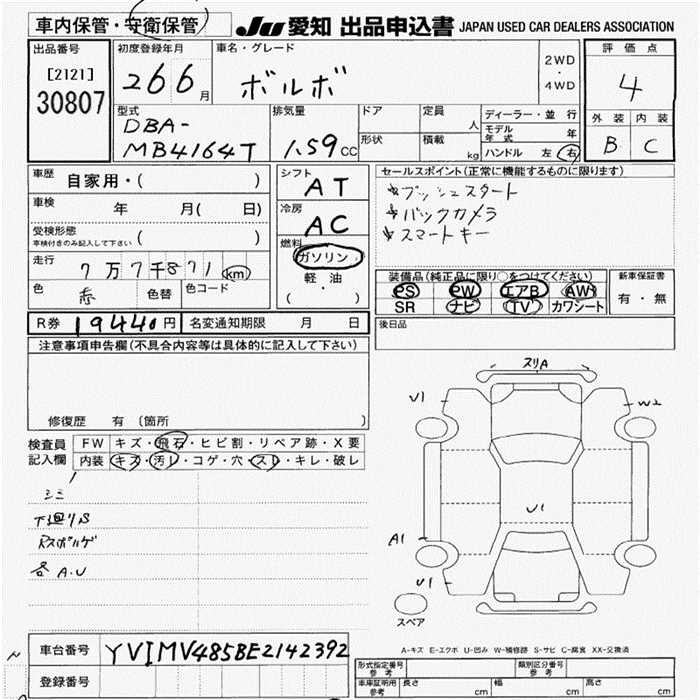 車内保管・安衛保管 JU 愛知 出品申込書 JAPAN USED CAR DEALERS ASSOCIATION
出品番号
[2121]
30807
初度登録年月
26 6 月
車名・グレード
ボルボ
2WD
・
4WD
評価点
4
外装 内装
B C
型式
DBA-
MB4164T
排気量
1.59 CC
ドア
形状
定員
人
積載
kg
ディーラー・並行
モデル年式 年
ハンドル 左 右
車歴
自家用・( )
車検
年 月( 日)
受検形態
車検付きのみ記入して下さい ( )
走行
7万7千871 km
色
赤
色替
色コード
シフト
AT
冷房
AC
燃料
ガソリン
軽・油
( )
セールスポイント(正常に機能するものに限ります)
プッシュスタート
バックカメラ
スマートキー
装備品(純正品に限り○をつけてください)
PS PW エアB AW
SR ナビ TV カワシート
新車保証書
有・無
R券 19440円 名変通知期限 月 日
後日品
注意事項申告欄(不具合内容等は具体的に記入して下さい)
修復歴 有〔箇所 〕
検査員
記入欄
FW キズ・飛石・ヒビ割・リペア跡・X要
内装 キズ・汚レ・コゲ・穴・スレ・キレ・破レ
シミ
下廻りS
各A.U
スリA
U1
W2
U1
A1
U1
スペア
A-キズ E-エクボ U-凹み W-補修跡 S-サビ C-腐食 XX-交換済
車台番号 YV1MV485BE2142392
登録番号
形式指定番号
参考
類別区分番号
参考
車庫証明用
参考
長さ cm 幅 cm 高さ cm